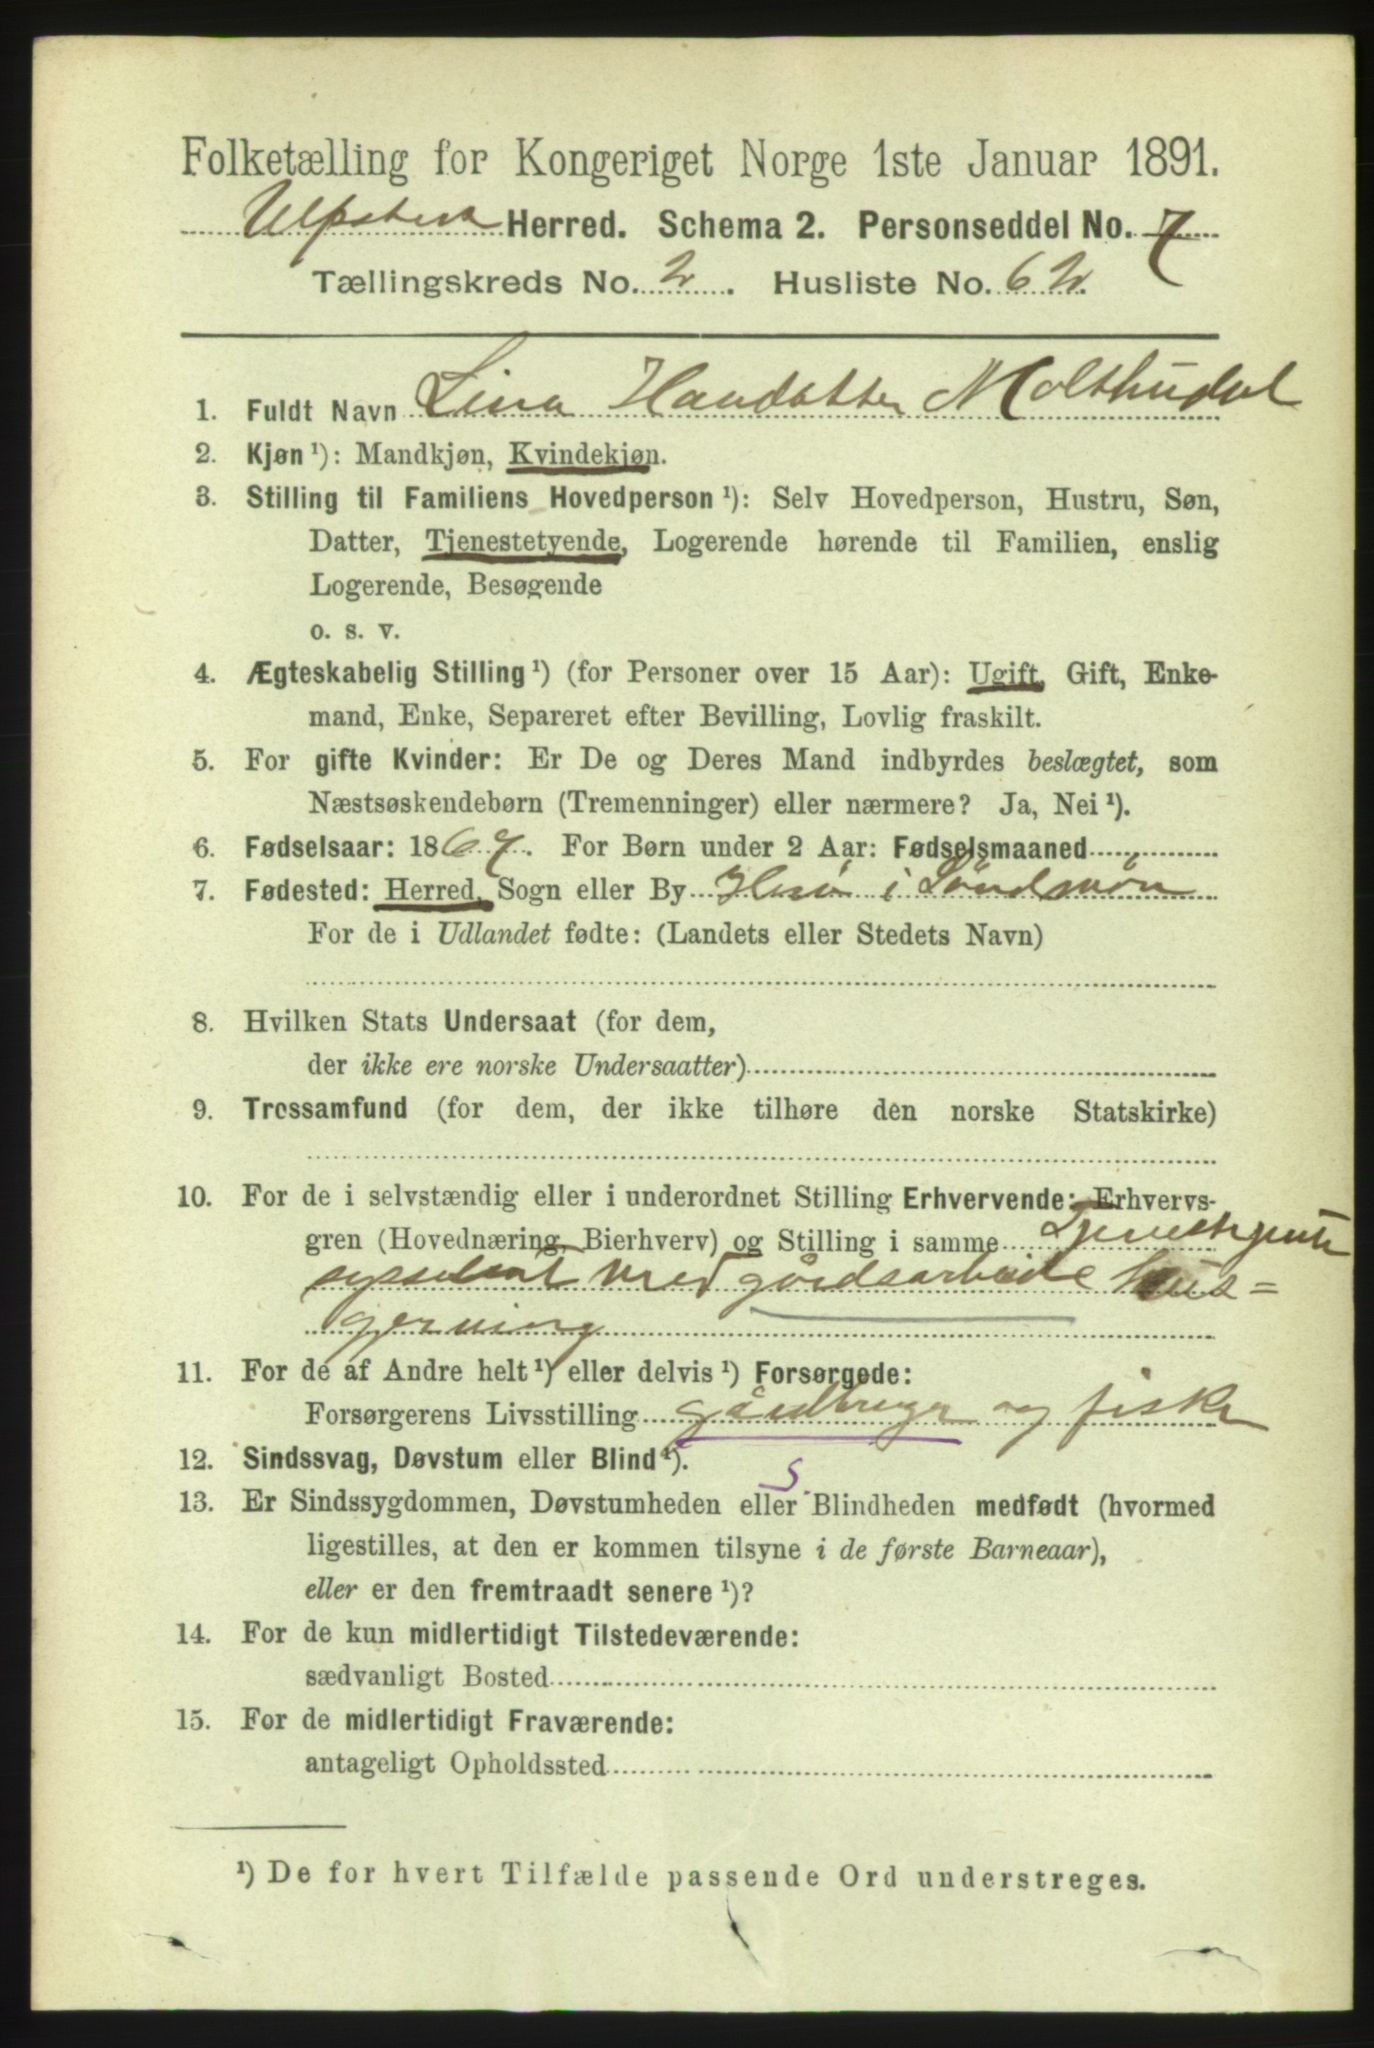 Folketælling for Kongeriget Norge 1ste Januar 1891.
Ulfsten Herred. Schema 2. Personseddel No. 7
Tællingskreds No. 2. Husliste No. 62.
1. Fuldt Navn Lina Hansdatter Molthudal
2. Kjøn ¹): Mandkjøn, Kvindekjøn.
3. Stilling til Familiens Hovedperson ¹): Selv Hovedperson, Hustru, Søn,
Datter, Tjenestetyende, Logerende hørende til Familien, enslig
Logerende, Besøgende
o. s. v.
4. Ægteskabelig Stilling ¹) (for Personer over 15 Aar): Ugift, Gift, Enke-
mand, Enke, Separeret efter Bevilling, Lovlig fraskilt.
5. For gifte Kvinder: Er De og Deres Mand indbyrdes beslægtet, som
Næstsøskendebørn (Tremenninger) eller nærmere? Ja, Nei ¹).
6. Fødselsaar: 1867. For Børn under 2 Aar: Fødselsmaaned
7. Fødested: Herred, Sogn eller By Herø i Søndmør
For de i Udlandet fødte: (Landets eller Stedets Navn)
8. Hvilken Stats Undersaat (for dem,
der ikke ere norske Undersaatter)
9. Trossamfund (for dem, der ikke tilhøre den norske Statskirke)
10. For de i selvstændig eller i underordnet Stilling Erhvervende: Erhvervs-
gren (Hovednæring, Bierhverv) og Stilling i samme Tjenestejente
sysselsat med gårdsarbeide hus=
gjerning
11. For de af Andre helt ¹) eller delvis ¹) Forsørgede:
Forsørgerens Livsstilling gårdbruger og fisker
12. Sindssvag, Døvstum eller Blind ¹).
S.
13. Er Sindssygdommen, Døvstumheden eller Blindheden medfødt (hvormed
ligestilles, at den er kommen tilsyne i de første Barneaar),
eller er den fremtraadt senere ¹)?
14. For de kun midlertidigt Tilstedeværende:
sædvanligt Bosted
15. For de midlertidigt Fraværende:
antageligt Opholdssted
¹) De for hvert Tilfælde passende Ord understreges.